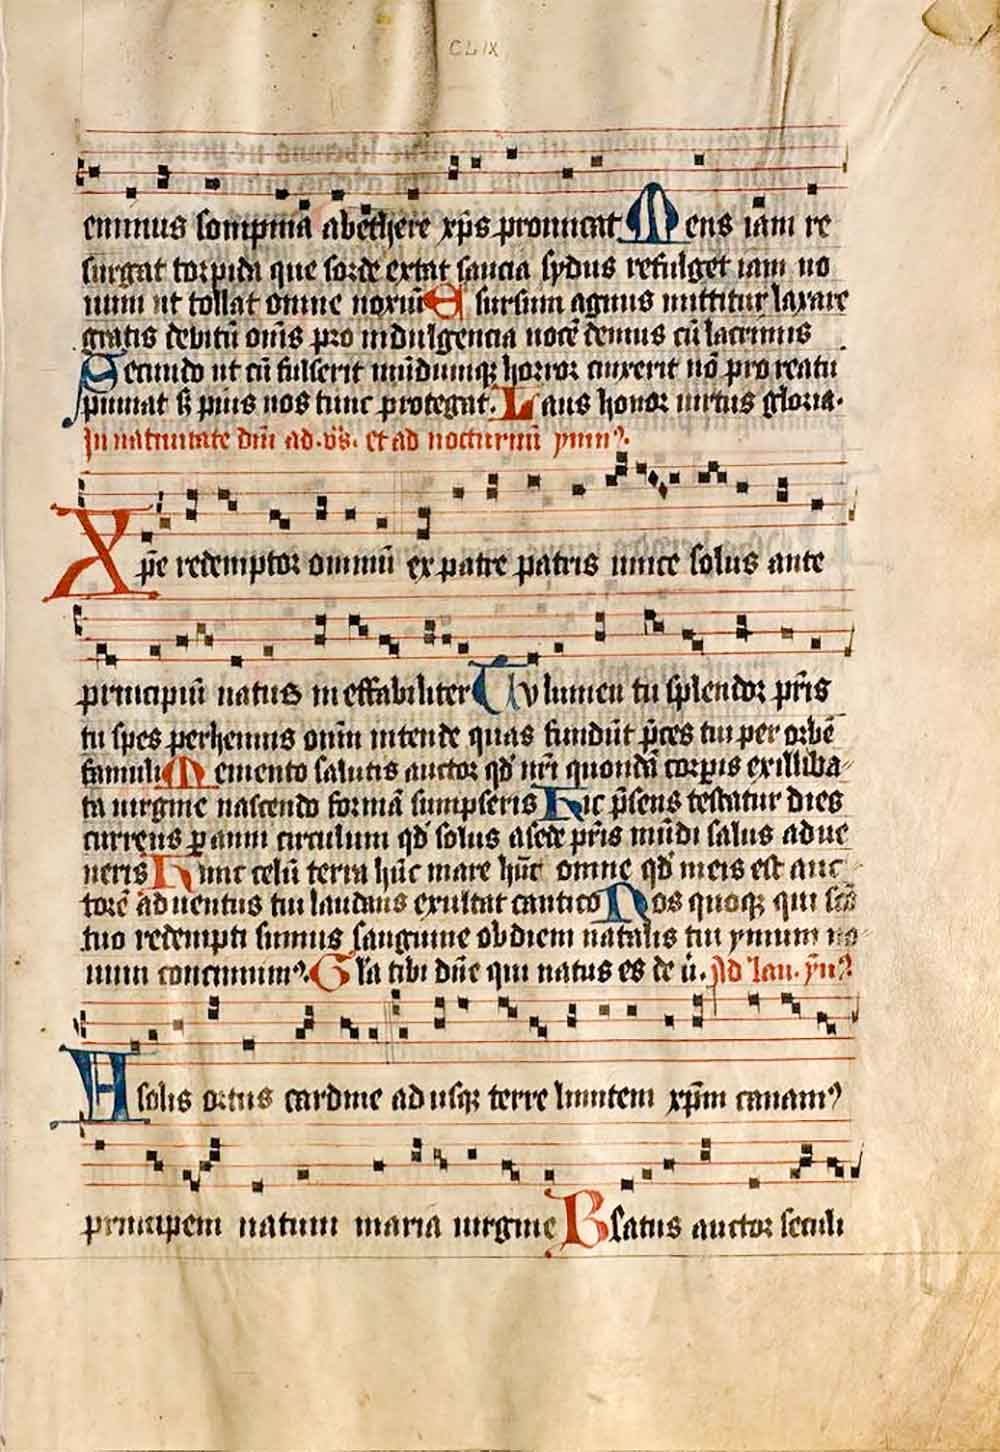 CLIX
eminus sompnia ab ethere xp̄s promicat Mens iam re
surgat torpida que sorde extat saucia sydus refulget iam no
uum ut tollat omne noxiū E sursum agnus mittitur laxare
gratis debitū om̄s pro indulgencia uocē demus cū lacrimis
Secundo ut cū fulserit mūdumqꝫ horror cinxerit nō pro reatu
puniat sꝫ pius nos tunc protegat. Laus honor uirtus gloria.
In natiuitate dn̄i ad .vs̄. et ad nocturnū ymnꝰ.
Xp̄e redemptor omniū ex patre patris unice solus ante
principiū natus ineffabiliter Tu lumen tu splendor pr̄is
tu spes perhennis omīu intende quas fundūt p̄ces tui per orbē
famuli Memento salutis auctor qd̄ nr̄i quondā corpis exilliba
ta uirgine nascendo formā sumpseris Hic p̄sens testatur dies
currens ꝑ anni circulum qd̄ solus a sede pr̄is mūdi salus adue
neris Hunc celū terra hūc mare hūc omne qd̄ in eis est auc
torē aduentus tui laudans exultat cantico Nos quoqꝫ qui scō
tuo redempti sumus sanguine ob diem natalis tui ymnum no
uum concinimꝰ. Gl̄a tibi dn̄e qui natus es de ū. Ad lau. ȳnꝰ
A solis ortus cardine ad usqꝫ terre limitem xp̄m canamꝰ
principem natum maria uirgine Beatus auctor seculi